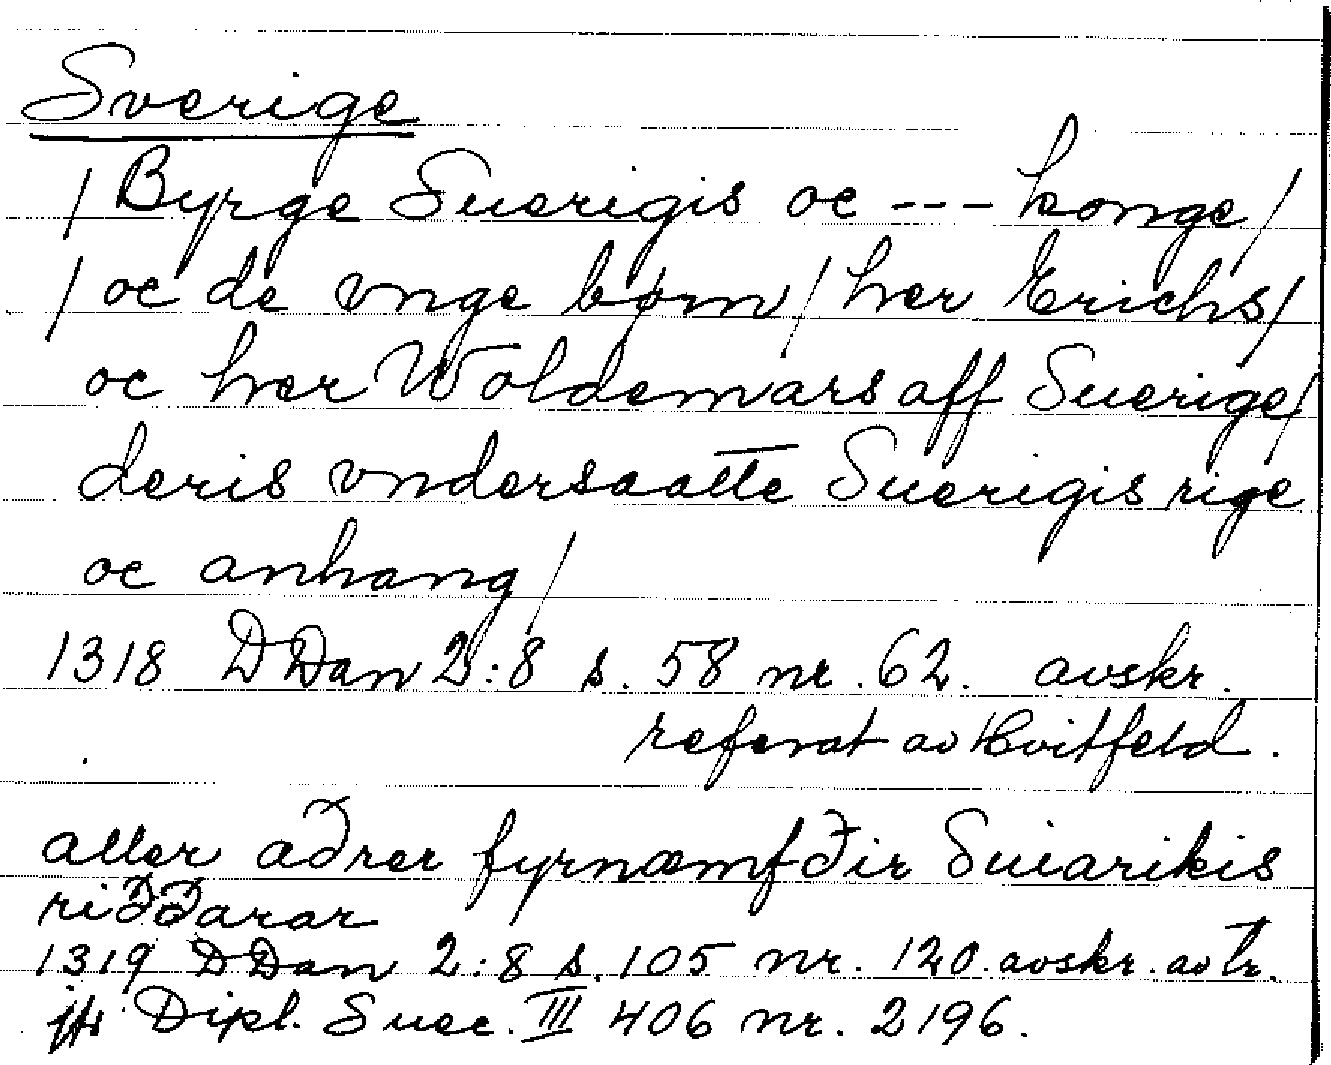 Sverige
/ Byrge Suerigis oc --- konge /
/ oc de vnge børn / her Erichs /
oc her Woldemars aff Suerige /
deris vndersaatte Suerigis rige
oc anhang /
1318 DDan 2:8 s. 58 nr. 62. avskr.
referat av Hvitfeld.
aller aðrer fyrnæmfðir Suiarikis
riððarar
1319 DDan 2:8 s. 105 nr. 120. avskr. av tr.
jfr Dipl. Suec. III 406 nr. 2196.